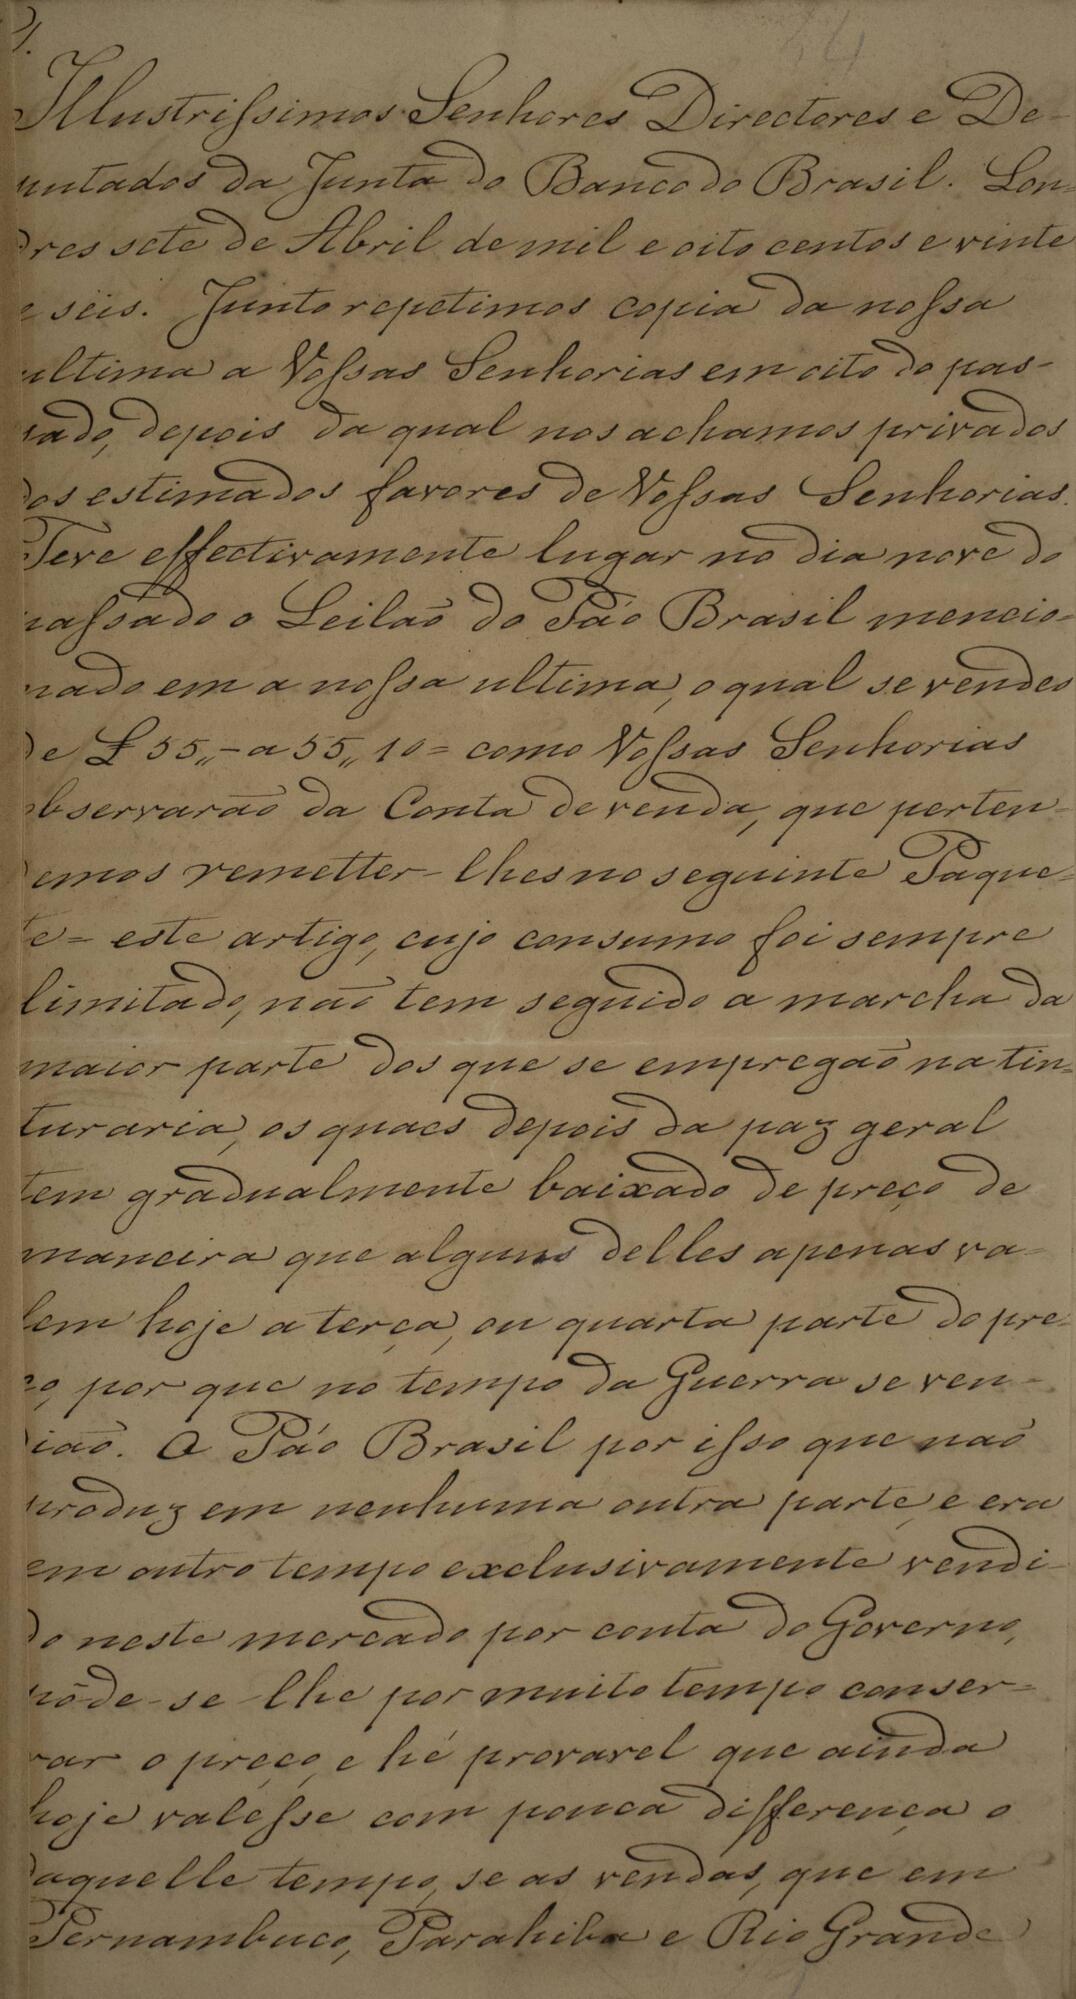 Illustrissimos Senhores Directores e De-
putados da Junta do Banco do Brasil. Lon-
dres sete de Abril de mil e oito centos e vinte
e seis. Junto repetimos copia da nossa
ultima a Vossas Senhorias em oito do pas-
sado, depois da qual nos achamos privados
dos estimados favores de Vossas Senhorias.
Teve effectivamente lugar no dia nove do
passado o Leilaõ do Páo Brasil mencio-
nado em a nossa ultima, o qual se vendeo
de £ 55,,- a 55,, 10 = como Vossas Senhorias
observaraõ da Conta de venda, que perten-
demos remetter-lhes no seguinte Paque-
te = este artigo, cujo consumo foi sempre
limitado, naõ tem seguido a marcha da
maior parte dos que se empregaõ na tin-
turaria, os quaes depois da paz geral
tem gradualmente baixado de preço de
maneira que alguns delles apenas va-
lem hoje a terça, ou quarta parte do pre-
ço, por que no tempo da Guerra se ven-
diaõ. O Páo Brasil por isso que naõ
produz em nenhuma outra parte, e era
em outro tempo exclusivamente vendi-
do neste mercado por conta do Governo,
pôde-se-lhe por muito tempo conser-
var o preço, e hé provavel que ainda
hoje valesse com pouca differença o
daquelle tempo, se as vendas, que em
Pernambuco, Parahiba e Rio Grande